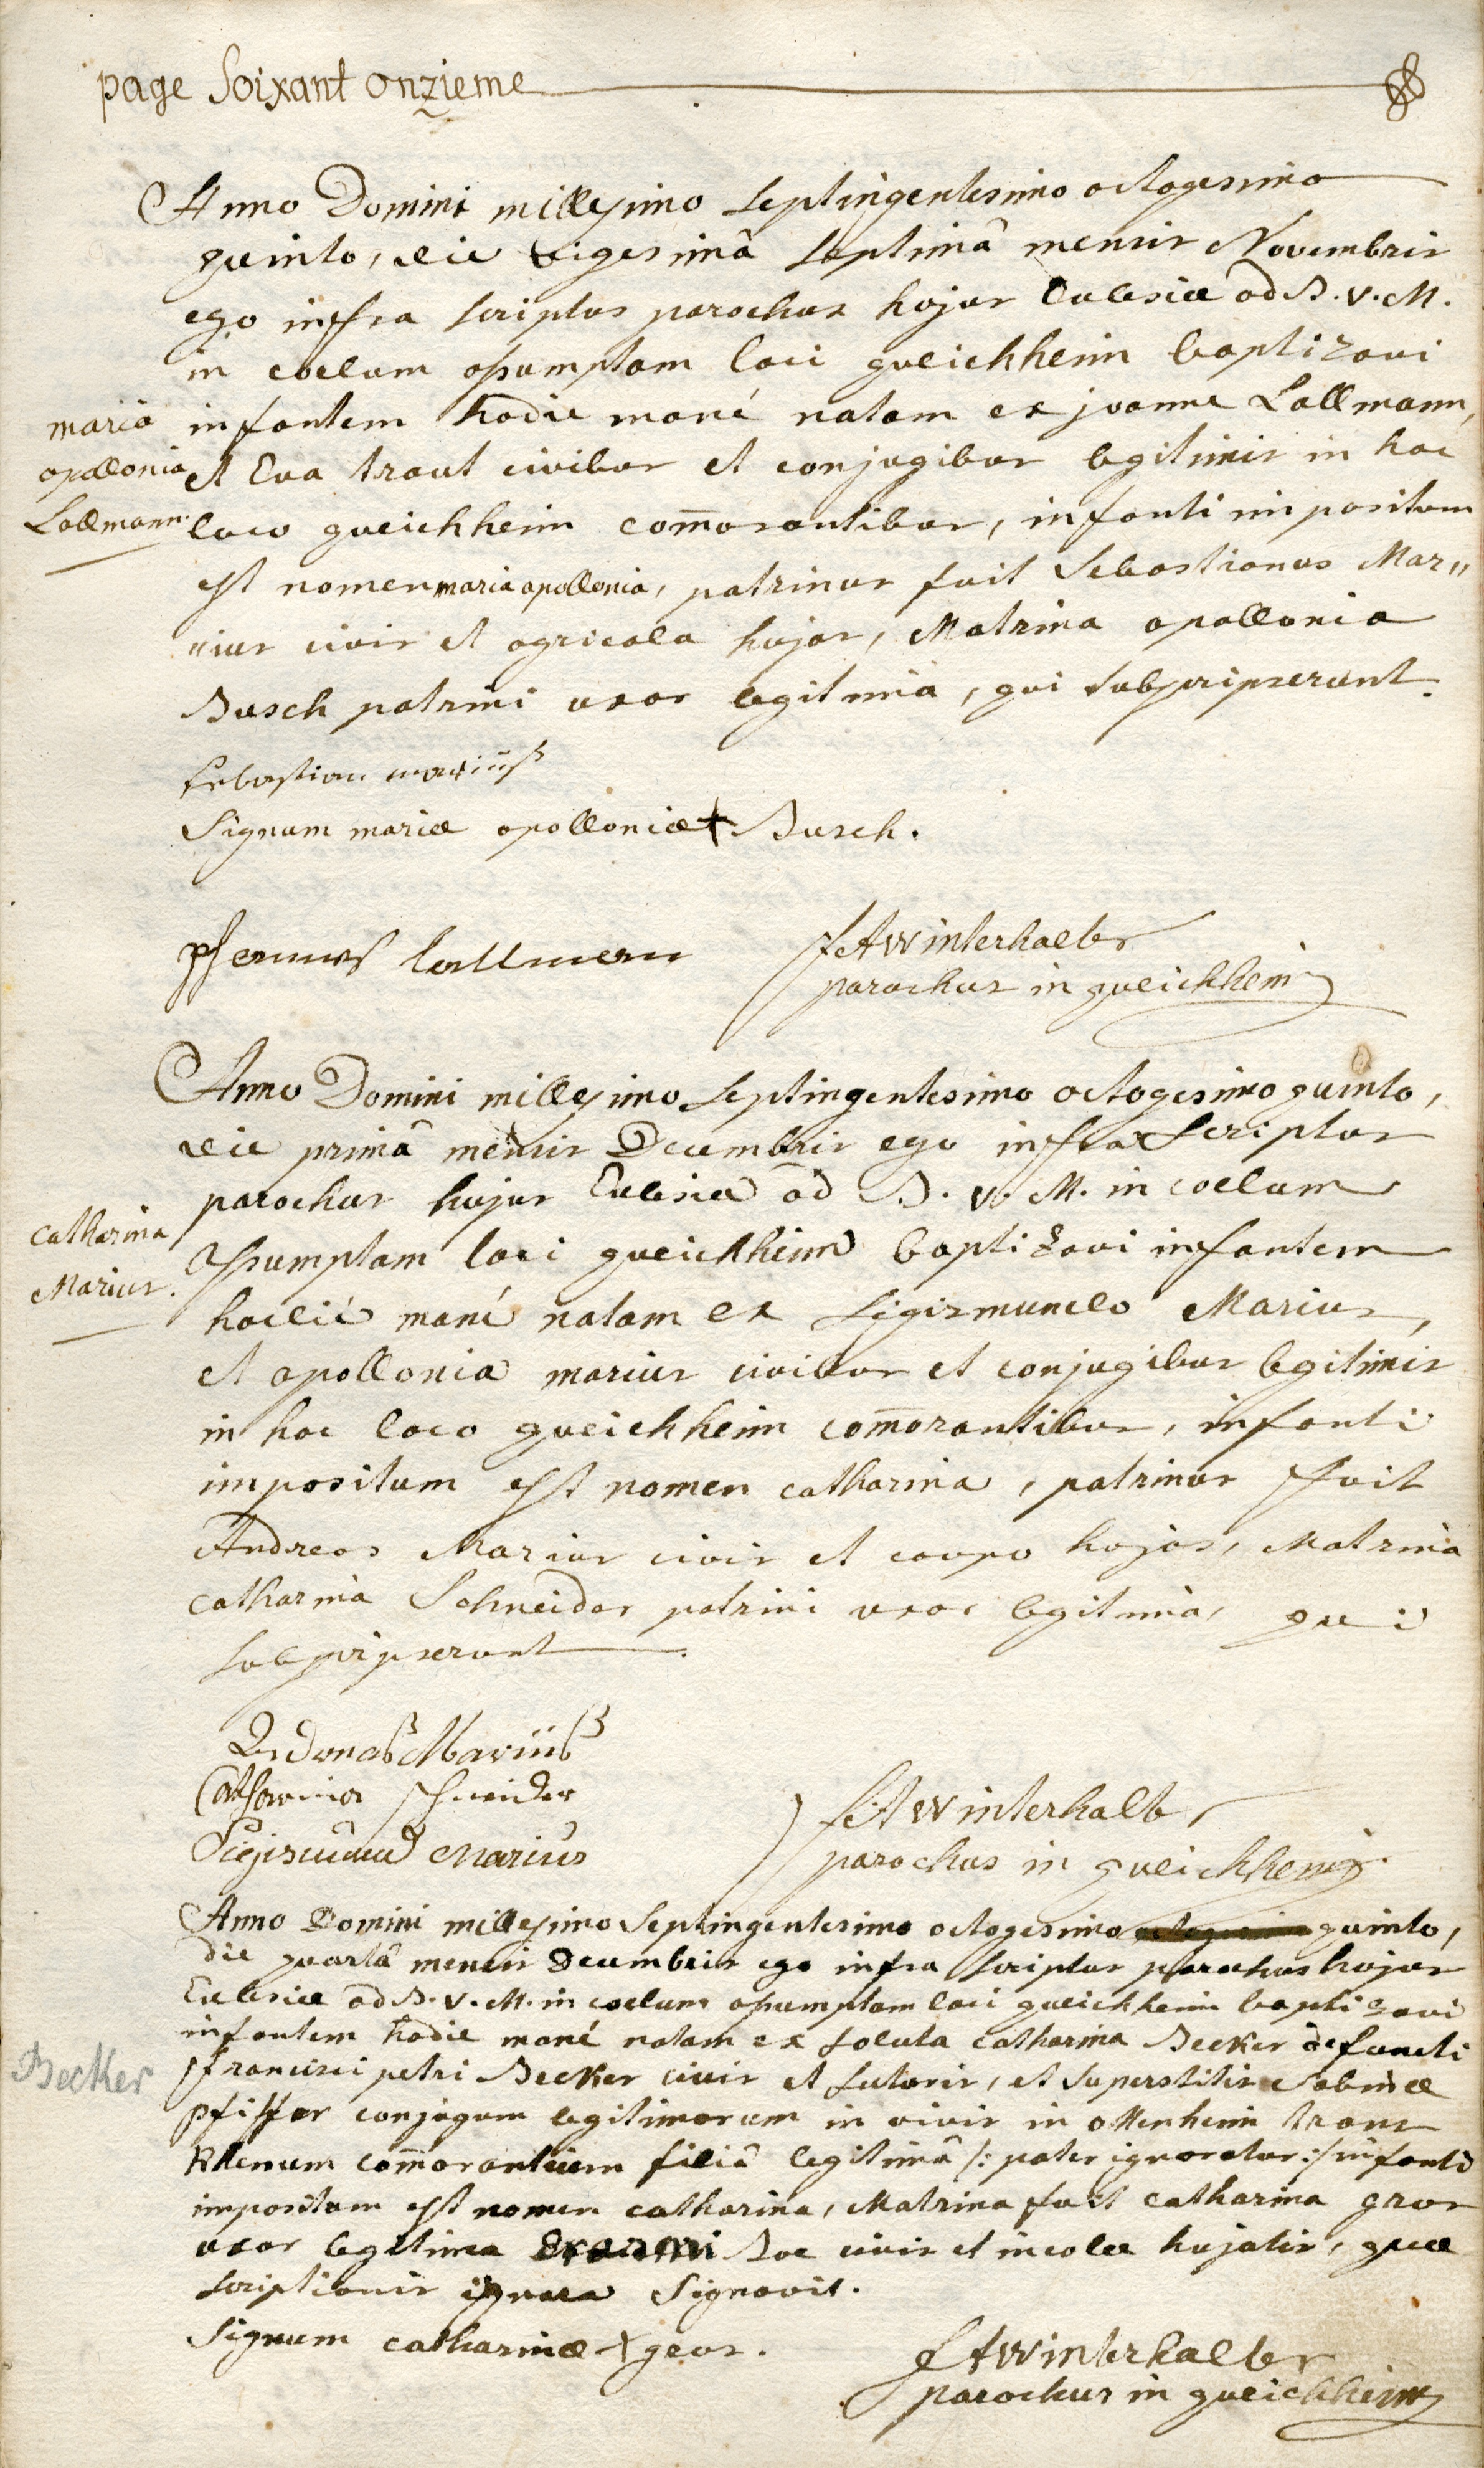 page Soixant onzieme
Anno Domini millesimo Septingentesimo octogesimo
quinto, die vigesimâ Septimâ mensis Novembris
ego infra scriptus parochus hujus Ecclesiæ ad B. V. M.
in coelum assumptam loci gueichheim baptizavi
maria
apollonia
Lallmann.
infantem hodie mané natam ex joanne Lallmann,
et Eva traut civibus et conjugibus legitimis in hoc
loco gueichheim com̄orantibus, infanti impositum
est nomen maria apollonia, patrinus fuit Sebastianus Mar„
„ius civis et agricola hujas, Matrina apollonia
Busch patrini uxor legitima, qui subscripserunt.
Sebastian mariuß
Signum mariæ apolloniæ + Busch.
lallmann
FAWinterhalter
parochus in gueichheim
Anno Domini millesimo Septingentesimo octogesimo quinto,
die primâ mensis Decembris ego infra Scriptus
parochus hujus Ecclesiæ ad B. V. M. in coelum
catharina
Marius.
assumptam loci gueichheim baptizavi infantem
hodié mané natam ex Sigismundo Marius,
et apollonia marius civibus et conjugibus legitimis
in hoc loco gueichheim com̄orantibus, infanti
impositum est nomen catharina, patrinus fuit
Andreas Marius civis et caupo hujas, Matrina
catharina Schneider patrini uxor legitima, qui
subscripserunt.
Andreas Mariuß
Catharina Schneider
Marius
FAWinterhalter
parochus in gueichheim
Anno Domini millesimo Septingentesimo octogesimo quinto,
die quartâ mensis Decembris ego infra scriptus parochus hujus
Ecclesiæ ad B. V. M. in coelum assumptam loci gueichheim baptizavi
infantem hodie mané natam ex soluta catharina Becker defuncti
Becker
francisci petri Becker civis et sutoris, et superstitis Sabinæ
pfiffer conjugum legitimorum in vivis in ottenheim trans
Rhenum com̄orantium filiâ legitimâ /: pater ignoratur :/ infanti
impositum est nomen catharina, Matrina fuit catharina
uxor legitima civis et incolæ hujatis, quæ
scriptionis ignara Signavit.
Signum catharinæ +
FAWinterhalter
parochus in gueichheim